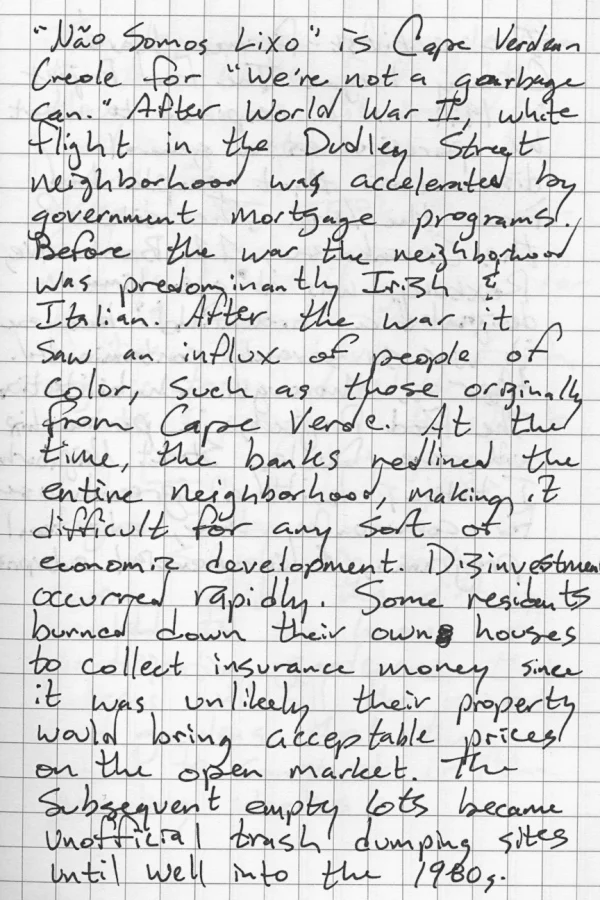 "Não Somos Lixo" is Cape Verdean
Creole for "We're not a garbage
can." After World War II, white
flight in the Dudley Street
neighborhood was accelerated by
government mortgage programs.
Before the war the neighborhood
was predominantly Irish &
Italian. After the war it
saw an influx of people of
color, such as those originally
from Cape Verde. At the
time, the banks redlined the
entire neighborhood, making it
difficult for any sort of
economic development. Disinvestment
occurred rapidly. Some residents
burned down their own houses
to collect insurance money since
it was unlikely their property
would bring acceptable prices
on the open market. The
subsequent empty lots became
unofficial trash dumping sites
until well into the 1980s.